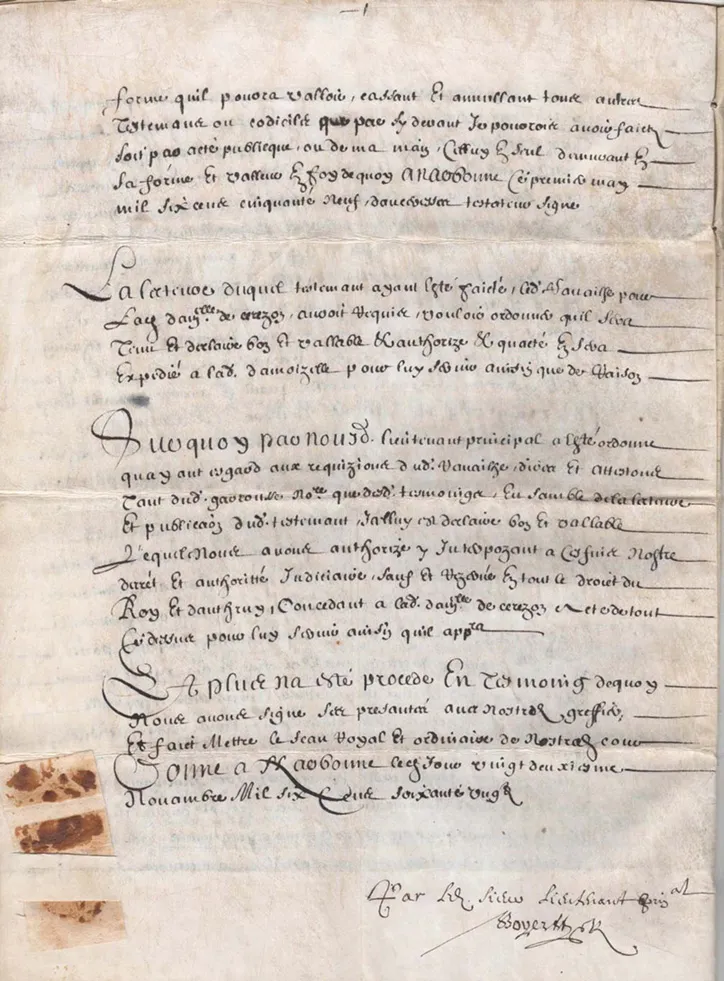 forme quil pouora valloir, cassant Et annullant tous autres
Testemans ou codicils que par sy devant Je pouvrois avoir faict
soit par acte publicque, ou de ma main, Cestuy Et seul demurant En
sa forme Et valleur En foy dequoy A Narbonne Ce premier may
mil six cens cinquante Neuf, testateur signe
La lecteure duquel testemant ayant Esté faicte, led. Vanaissze pour
lad. dam.lle de cerezon, auroit Requis, vouloir ordonner quil sera
Tenu Et declaire bon Et vallable & authorize & quacte En sera
Expedié a lad. damoizelle pour luy servir ainsin que de Raison
Surquoy par nousd. lieutenant principal a Esté ordonne
quayant esgard aux requizions dud. Vanaissze, dires Et attestons
Tant dud. no.re que desd. tesmoings, En samble de la lecteure
Et publication dud. testemant, Icelluy est declaire bon Et vallable
Lequel Nous avons authorize y Interpozant a Ces fins Nostre
decret Et authoritté Judiciaire, sauf Et Rezervé En tout le droict du
Roy Et dauthruy, Concedant a lad. dam.lle de cerezon acte de tout
Ce dessus pour luy servir ainsin quil app.ra
Et plus na esté procede En Tesmoing dequoy
Nous avons signe ses presantes avec Nostred. greffier,
Et faict Mettre le seau Royal Et ordinaire de Nostred. cour
Donne a Narbonne le jour vingt deuxiesme
Novambre Mil six Cens soixante ung
Par led. sieur Lieutenant prin.al